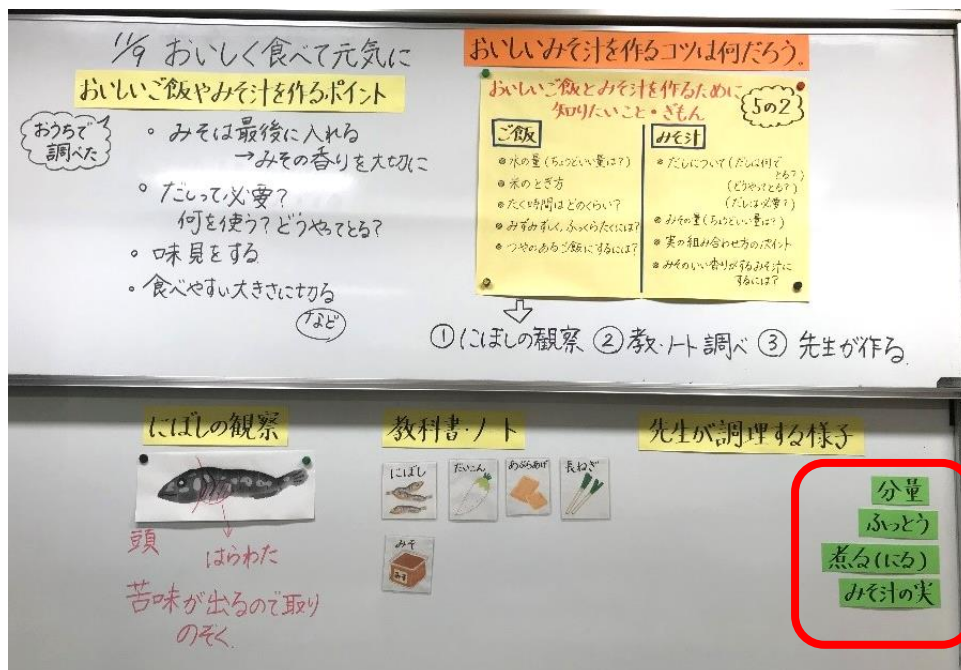 11/9 おいしく食べて元気に
おいしいご飯やみそ汁を作るポイント
おうちで
調べた
・みそは最後に入れる
→みその香りを大切に
・だしって必要?
何を使う?どうやってとる?
・味見をする
・食べやすい大きさに切る
など
おいしいみそ汁を作るコツは何だろう。
おいしいご飯とみそ汁を作るために
知りたいこと・ぎもん
5の2
ご飯
・水の量(ちょうどいい量は?)
・米のとぎ方
・たく時間はどのくらい?
・みずみずしく、ふっくらたくには?
・つやのあるご飯にするには?
みそ汁
・だしについて(だしは何で
とる?)
(どうやってとる?)
(だしは必要?)
・みその量(ちょうどいい量は?)
・実の組み合わせ方のポイント
・みそのいい香りがするみそ汁に
するには?
①にぼしの観察 ②教・ノート調べ ③先生が作る
にぼしの観察
頭
はらわた
苦味が出るので取り
のぞく。
教科書・ノート
にぼし
だいこん
あぶらあげ
長ねぎ
みそ
みそ
先生が調理する様子
分量
ふっとう
煮る(にる)
みそ汁の実